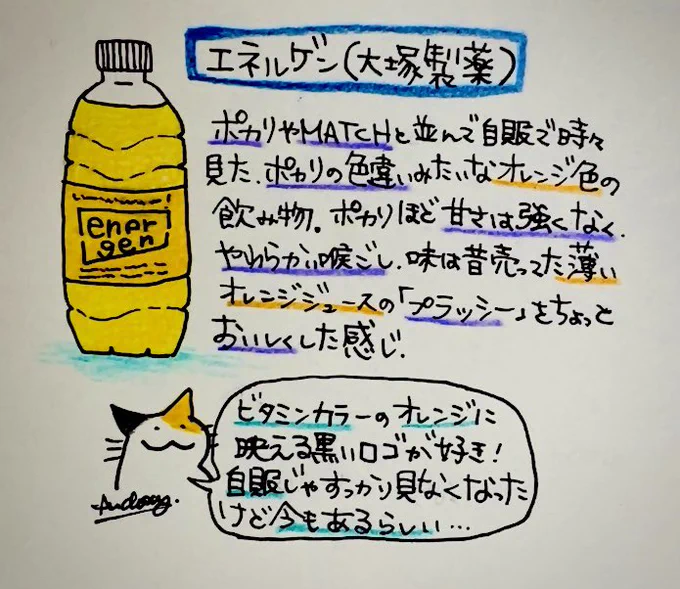 エネルゲン(大塚製薬)
ポカリやMATCHと並んで自販で時々
見た、ポカリの色違いみたいなオレンジ色の
飲み物。ポカリほど甘さは強くなく、
やわらかい喉ごし、味は昔売ってた薄い
オレンジジュースの「プラッシー」をちょっと
おいしくした感じ。
ener
gen
ビタミンカラーのオレンジに
映える黒いロゴが好き!
自販じゃすっかり見なくなった
けど今もあるらしい…